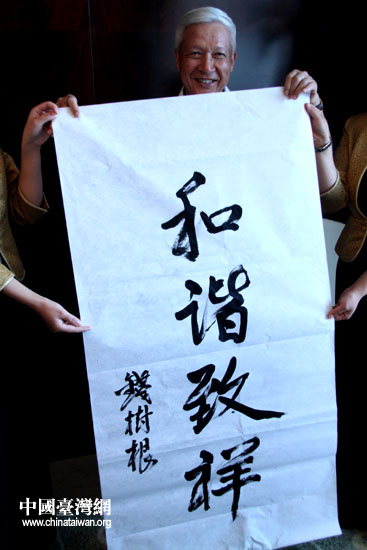 和谐致祥
錢树根
中國臺灣網
www.chinataiwan.org